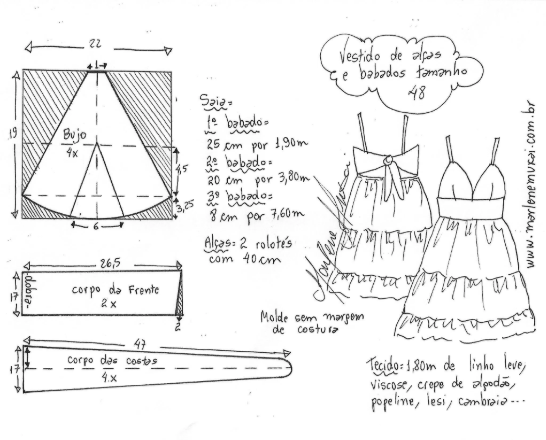 22
1
19
Bujo
4x
4,5
3,25
6
Vestido de alças
e babados tamanho
48
Saia=
1º babado=
25 cm por 1,90m
2º babado=
20 cm por 3,80m
3º babado=
8 cm por 7,60m
Alças= 2 rolotês
com 40cm
Molde sem margem
de costura
26,5
17
dobra
corpo da Frente
2x
2
47
17
corpo das costas
4.x
Tecido=1,80m de linho leve,
viscose, crepe de algodão,
popeline, lesi, cambraia...
www.marlenemukai.com.br
Marlene Mukai